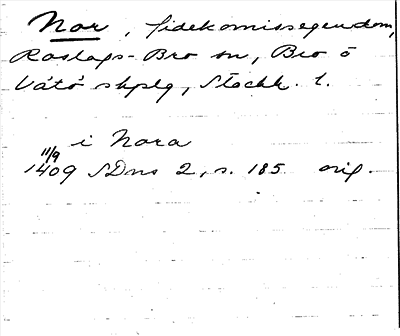 Nor, fideikomissegendom,
Roslags-Bro sn, Bro ô
Vätö skplg, Stockh. l.
i Nora
11/9
1409 SDns 2, s. 185 orig.